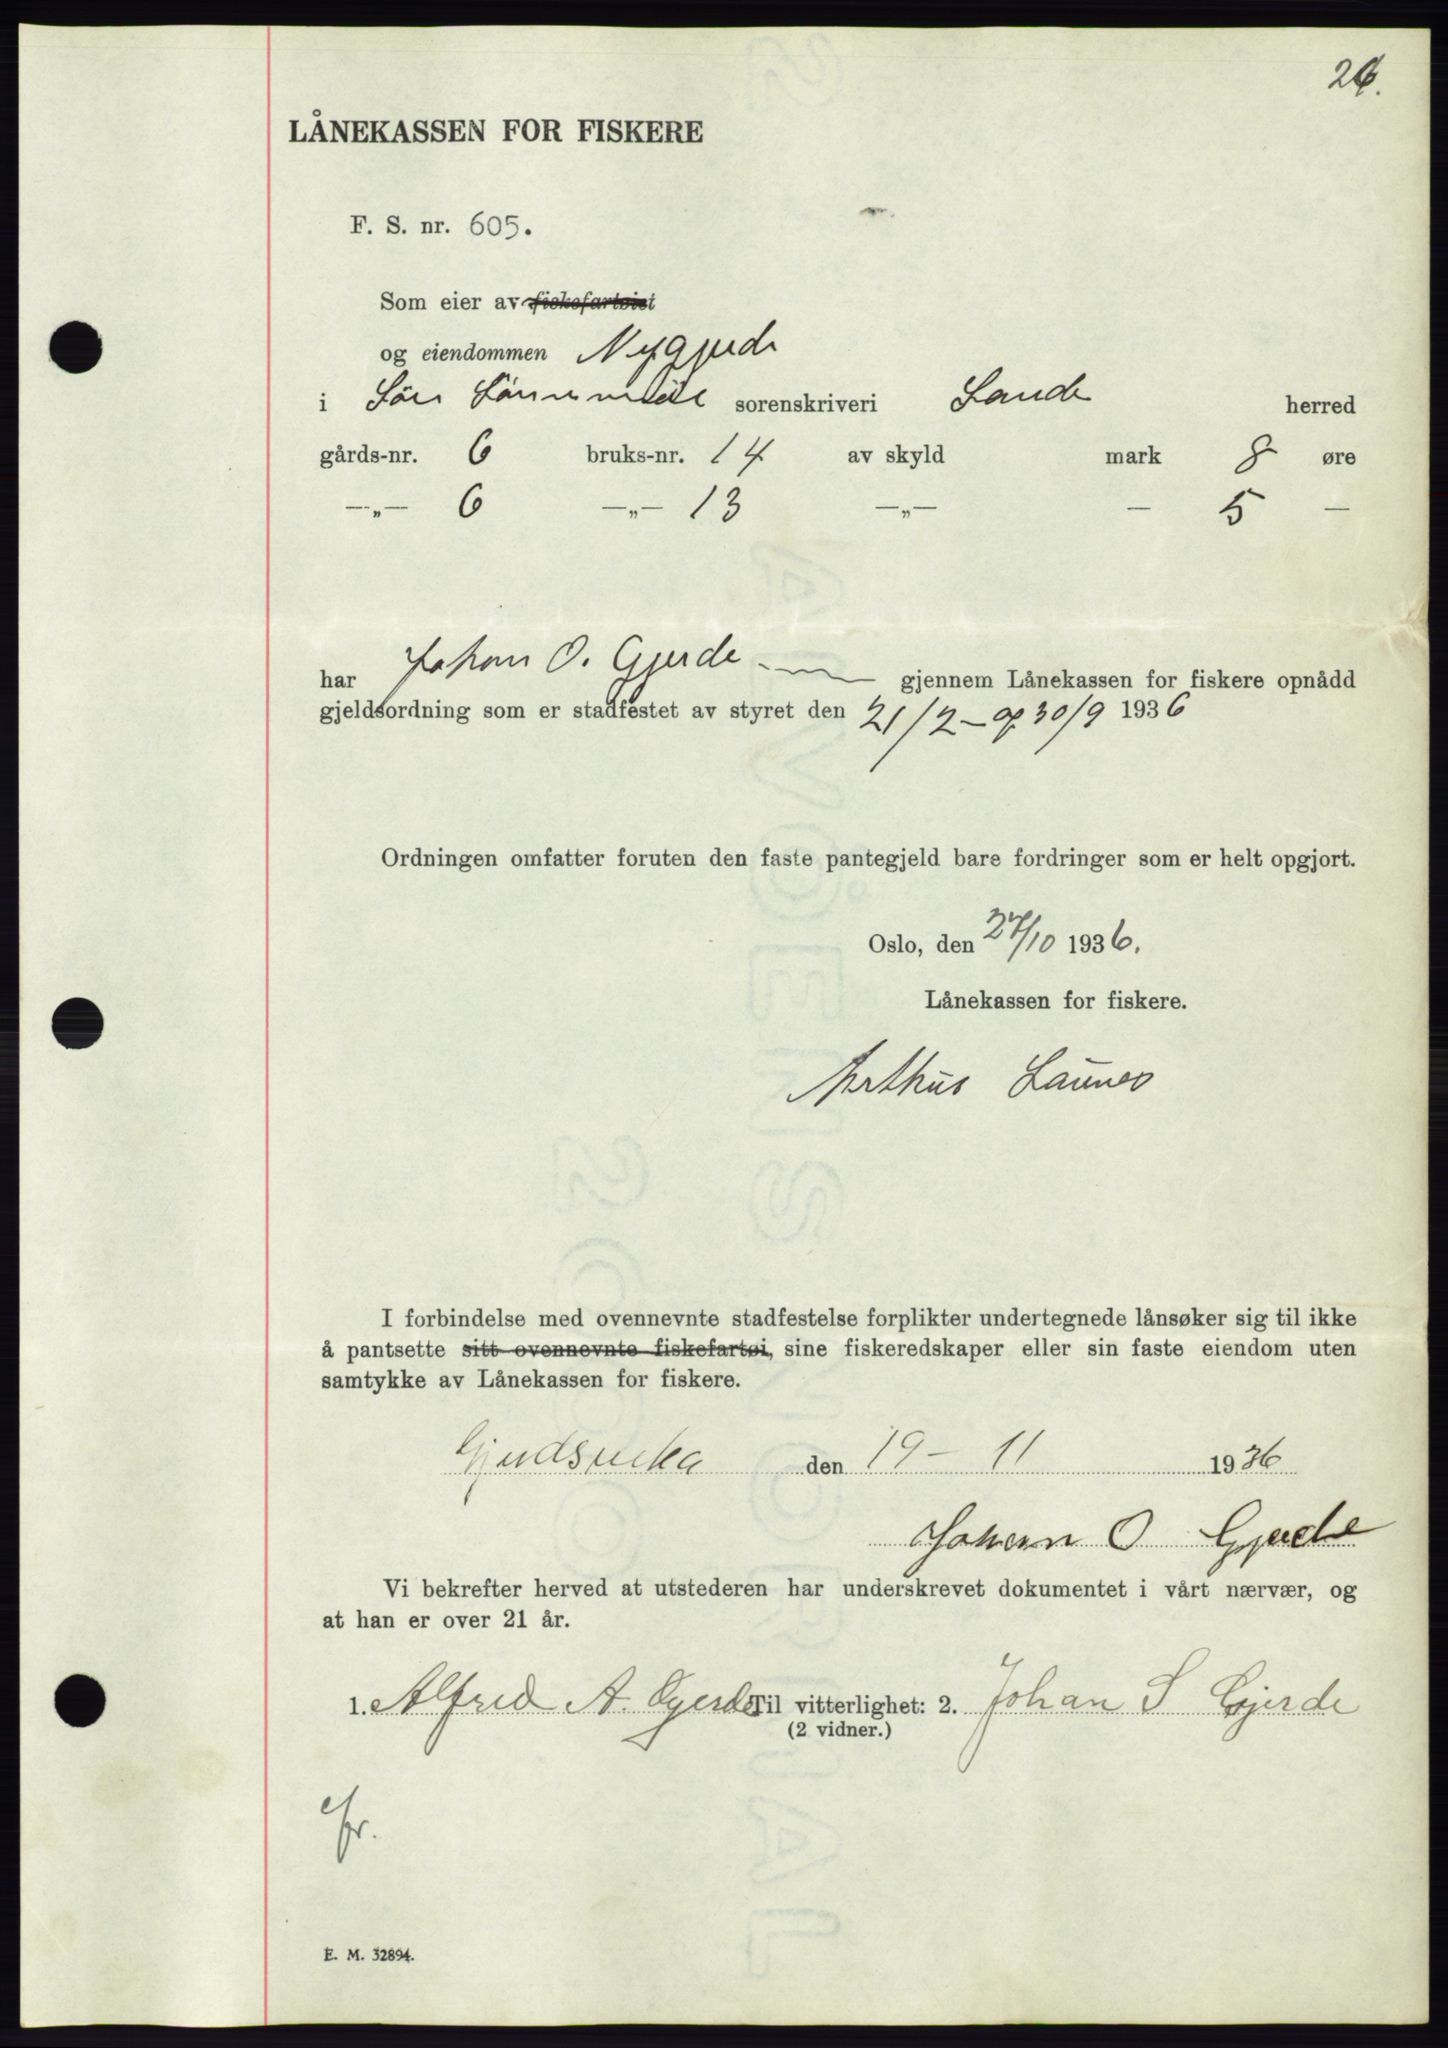 26.
LÅNEKASSEN FOR FISKERE
F. S. nr. 605.
Som eier av fiskefartøiet
og eiendommen Nygjerde
i Söre Sönnmöre sorenskriveri Sande herred
gårds-nr. 6 bruks-nr. 14 av skyld mark 8 øre
—„— 6 —„— 13 —„— — 5 —
har Johan O. Gjerde gjennem Lånekassen for fiskere opnådd
gjeldsordning som er stadfestet av styret den 21/2 - og 30/9 1936
Ordningen omfatter foruten den faste pantegjeld bare fordringer som er helt opgjort.
Oslo, den 27/10 1936.
Lånekassen for fiskere.
Arthur
I forbindelse med ovennevnte stadfestelse forplikter undertegnede lånsøker sig til ikke
å pantsette sitt ovennevnte fiskefartøi, sine fiskeredskaper eller sin faste eiendom uten
samtykke av Lånekassen for fiskere.
Gjerdsvika den 19 - 11 1936
Johan O Gjerde
Vi bekrefter herved at utstederen har underskrevet dokumentet i vårt nærvær, og
at han er over 21 år.
1. Alfred A. Gjerde Til vitterlighet: 2. Johan S Gjerde
(2 vidner.)
E. M. 32894.
ALVØENS NORMAL